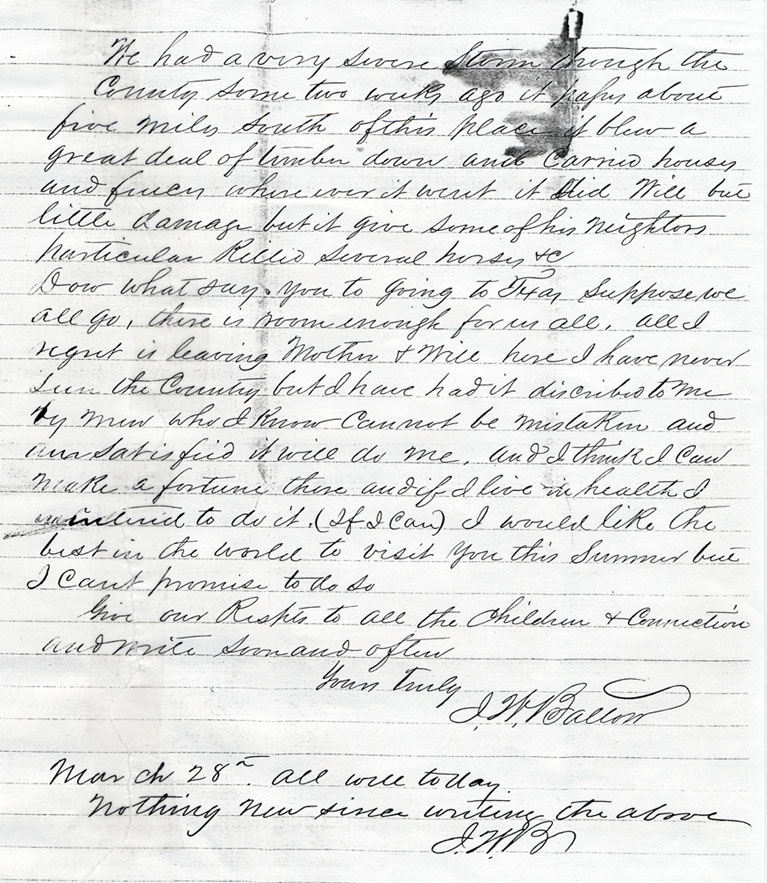 We had a very severe Storm through the
County some two weeks ago it pass about
five miles south of this place it blew a
great deal of timber down and Carried houses
and fences where ever it went it did Will but
little damage but it give some of his neighbors
particular Killed several horses &c
Dow what say you to going to Texas Suppose we
all go, there is room enough for us all, all I
regret is leaving Mother & Will here I have never
seen the Country but I have had it discribed to me
by men who I know Cannot be mistaken and
am Satisfied it will do me, and I think I can
make a fortune there and if I live in health I
intend to do it. (If I Can) I would like the
best in the world to visit you this Summer but
I Can't promise to do so
Give our Respts to all the Children & Connection
and write soon and often
Yours Truly
J. W. Ballow
March 28th. all well today.
Nothing New since writing the above
J. W. B